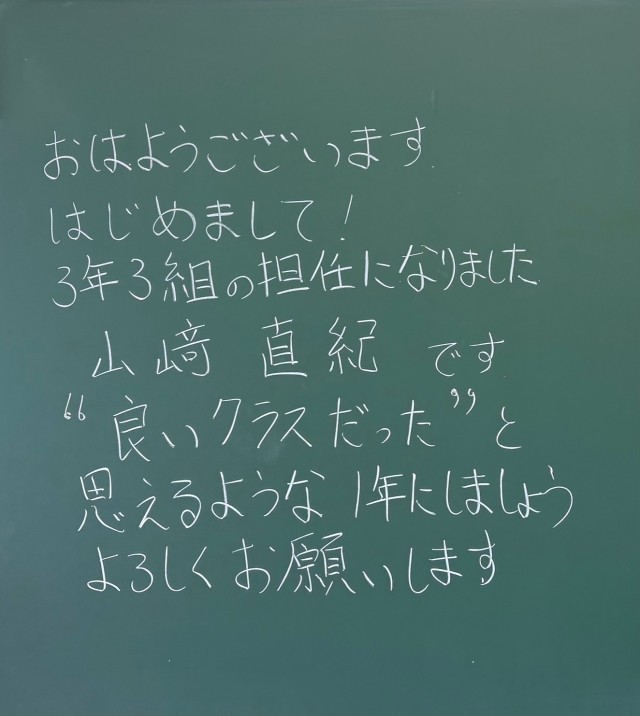 おはようございます
はじめまして!
3年3組の担任になりました
山﨑 直紀 です
“良いクラスだった”と
思えるような1年にしましょう
よろしくお願いします